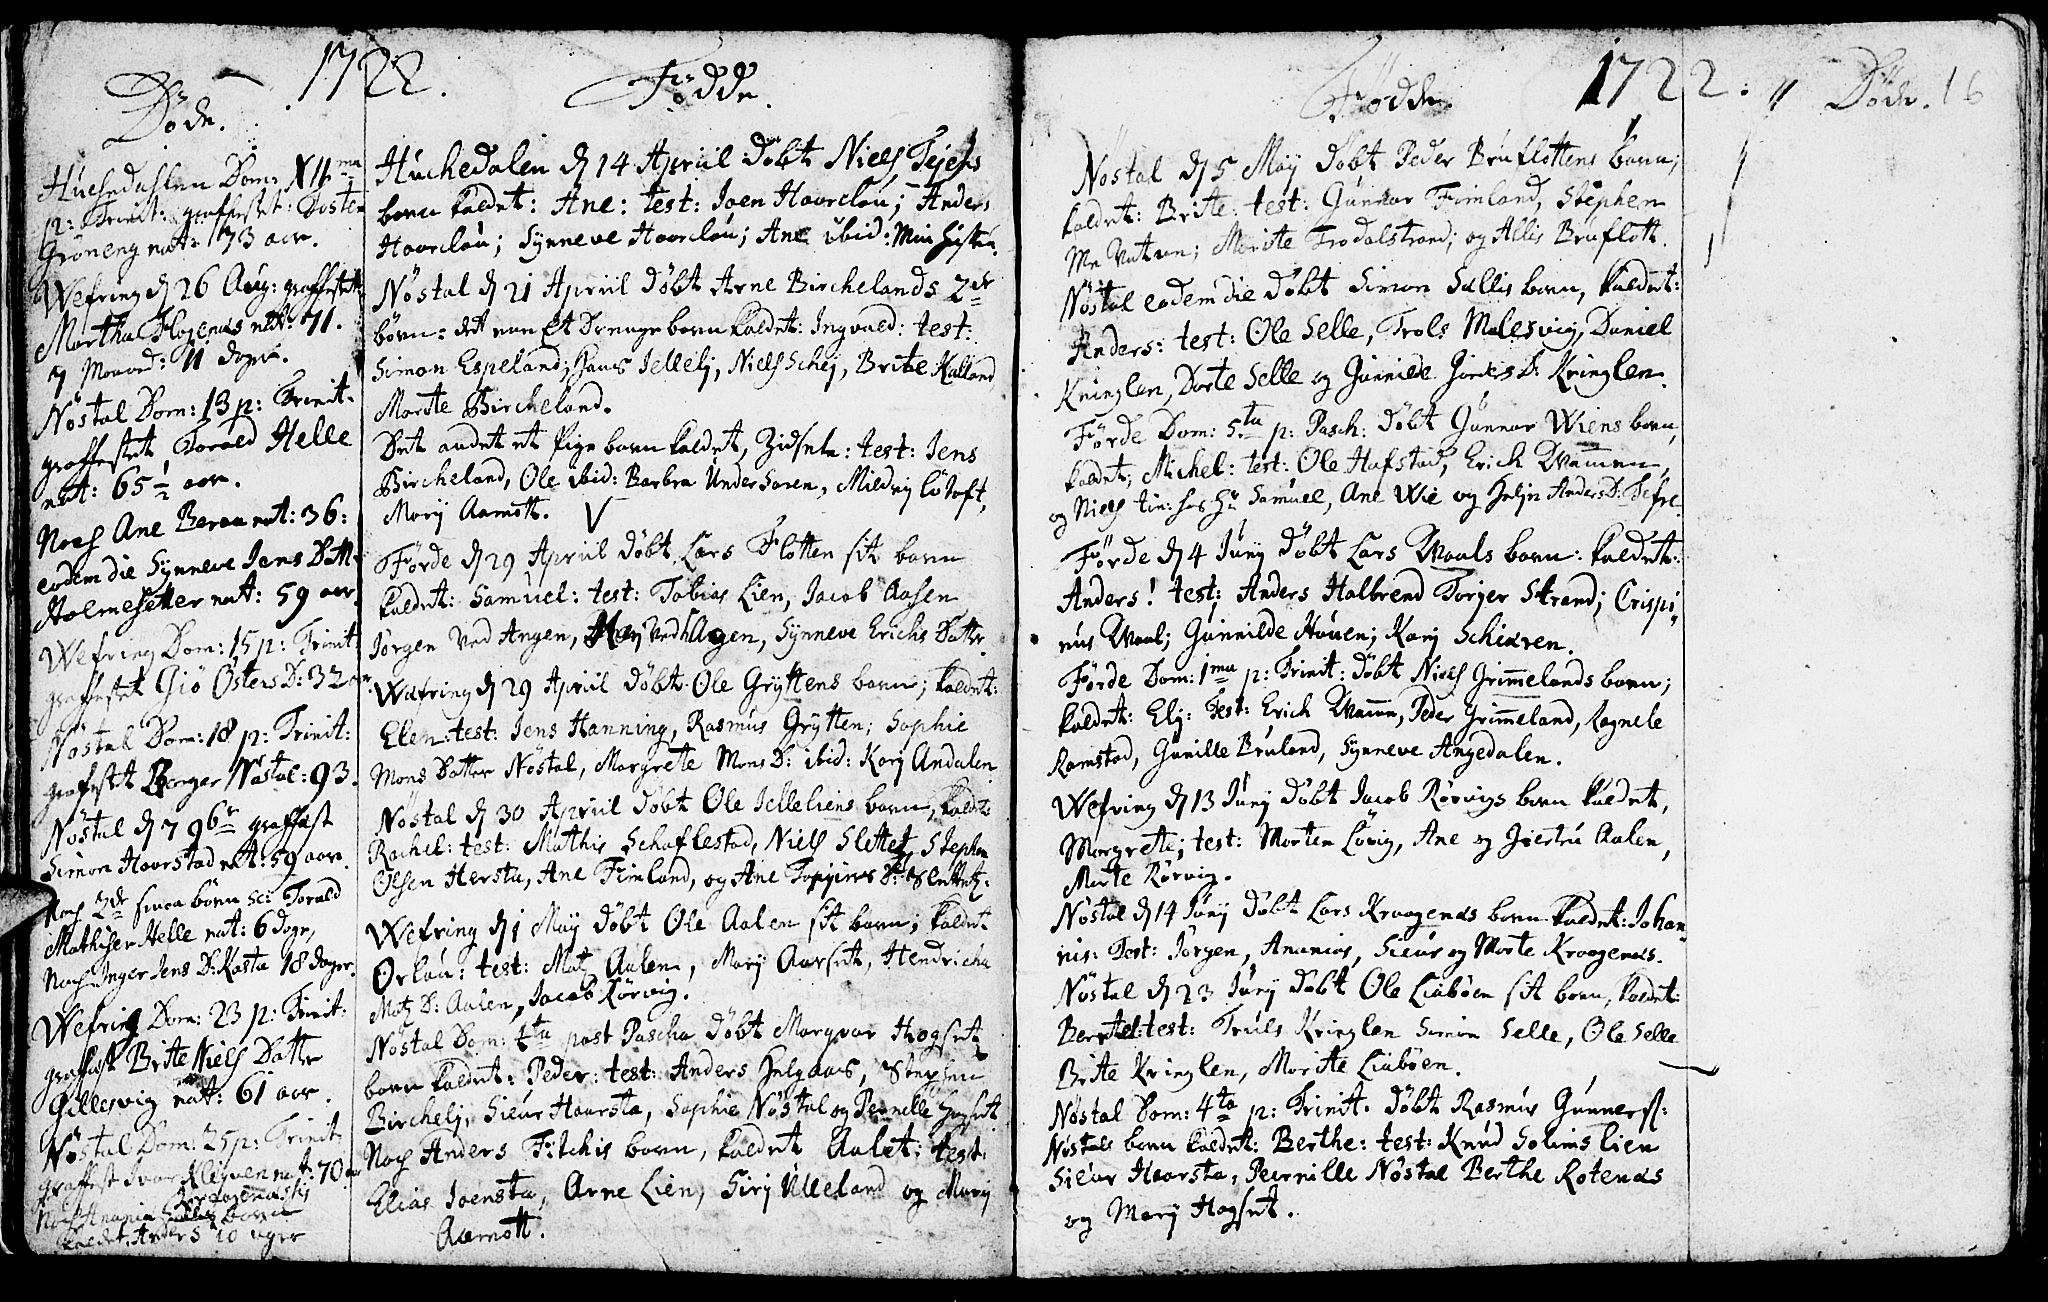 1722.
Döde.
Huchedahlen Dom: XIIma
p: Trinit: graffestet: Dosten
Gröneng nat: 73 aar.
Wefring d 26 Aug: graffestet
Martha Flogenæs nat: 71.
7 Maaned: 11 dage.
Nöstal Dom: 13 p: Trinit:
graffestet Torald Helle
nat: 65 1/2 aar.
Noch Ane Berou nat: 36:
eodem die Synneve Jens Datt:
Holmesetter nat: 59 aar.
Wefring Dom: 15 p: Trinit
graffestet Giö Östers D: 32 aar
Nöstal Dom: 18 p: Trinit:
graffestet Berger Nöstal: 93.
Nöstal d 7 9br graffæst
Simon Haarstad nat: 59 aar.
Noch 2de smaa börn sc: Torald
Mathisen Helle nat: 6 doge,
Noch Inger Jens D: Kasta 18 dager.
Wefring Dom: 23 p: Trinit:
graffest Brite Niels Datter
Gillesvig nat: 61 aar.
Nöstal Dom: 25 p: Trinit
graffest Ivar Kleyven nat: 70 aar
Noch Anania
kaldet Anders 10 uger
Födde.
Huchedalen d 14 Apriil döbt Niels Tejens
barn kaldet: Ane: test: Joen Haarclou; Anders
Haarclou; Synneve Haarclou; Ane ibid: Min Hustru.
Nöstal d 21 Apriil döbt Arne Birchelands 2de
börn: det een Et Drenge barn kaldet: Ingvald: test:
Simon Espeland; Hans Jellelj, Niels Schej, Brite Kalland
Marite Bircheland.
Det andet et Pige barn kaldet, Zidsele: test: Jens
Bircheland, Ole ibid: Barbra Undersaren, Mildrij Lötoft,
Marj Aamott. V
Förde d 29 Apriil döbt Lars Flotten sit barn
kaldet: Samuel: test: Tobias Lien, Jacob Aasen
Jörgen ved Angen, Karj ved Angen, Synneve Erichs Datter
Wæfring d 29 Apriil döbt Ole Gryttens barn; kaldet:
Elen: test: Jens Hanning, Rasmus Grytten; Sophie
Mons Datter Nöstal, Margrete Mons D: ibid: Karj Andalen.
Nöstal d 30 Apriil döbt Ole Jelleliens barn, kaldet
Rachel: test: Mathis Schaflestad, Niels Slettet, Stephen
Olsen Hersta, Ane Fimland, og Ane Torgiers D: Slettet:
Wefring d 1 Maij döbt Ole Aalen sit barn; kaldet
Örlau: test: Matz Aalen, Marj Aarset, Hendricha
Matz D: Aalen, Jacob Rörvig.
Nöstal Dom: 4ta post Pascha döbt Margvar Hogset
barn kaldet: Peder: test: Anders Helgaas, Stephen
Birchelj, Sieur Haarsta, Sophie Nöstal og Pernelle Hogset.
Noch Anders Fitchis barn, kaldet Aalet: test:
Elias Joensta, Arne Lien, Sirj Ulleland og Marj
Aamott.
Födde.
1722:
Nöstal d 5 Maij döbt Peder Bruflottens barn;
kaldet: Brite: test: Gunnar Fimland, Stephen
Me Vatnen; Marite Trodalstrand; og Allis Bruflott.
Nöstal eodem die döbt Simon Sellis barn, kaldet:
Anders: test: Ole Selle, Trols Malesvig, Daniel
Kringlen, Dorte Selle og Gunnilde Jörens D: Kringlen.
Förde Dom: 5ta p: Pasch: döbt Gunnar Wiens barn,
kaldet; Michel: test: Ole Hafstad, Erich Wammen,
og Niels tien: hos Hr Samuel, Ane Wie og Heljn Anders D: Tefre.
Förde d 4 Junij döbt Lars Waals barn: kaldet:
Anders! test; Anders Halbrend Torger Strand; Crispi,,
nus Waal; Gunnilde Houen; Karj Schieren.
Förde Dom: 1ma p: Trinit: döbt Niels Grimelands barn;
kaldet: Elj: Test: Erich Wamen, Peder Grimeland, Ragnele
Ramstad, Gunille Bruland, Synneve Angedalen.
Wefring d 13 Junij döbt Jacob Rörvigs barn kaldet,
Margrete; test: Morten Lövig, Ane og Giertru Aalen,
Marte Rörvig.
Nöstal d 14 Junij döbt Lars Kraagenæs barn kaldet: Johan,,
nis: Test: Jörgen, Ananias, Sieur og Marte Kraagenæs.
Nöstal d 23 Junij döbt Ole Liaböen sit barn, kaldet:
Bertel: test: Truls Kringlen Simon Selle, Ole Selle
Brite Kringlen, Marite Liaböen.
Nöstal Dom: 4ta p: Trinit. döbt Rasmus Gunners:
Nöstals barn kaldet: Berthe: test: Knud Solemslien
Sieur Haarsta, Peernille Nöstal Berthe Rotenæs
og Marj Hogset.
Döde. 16